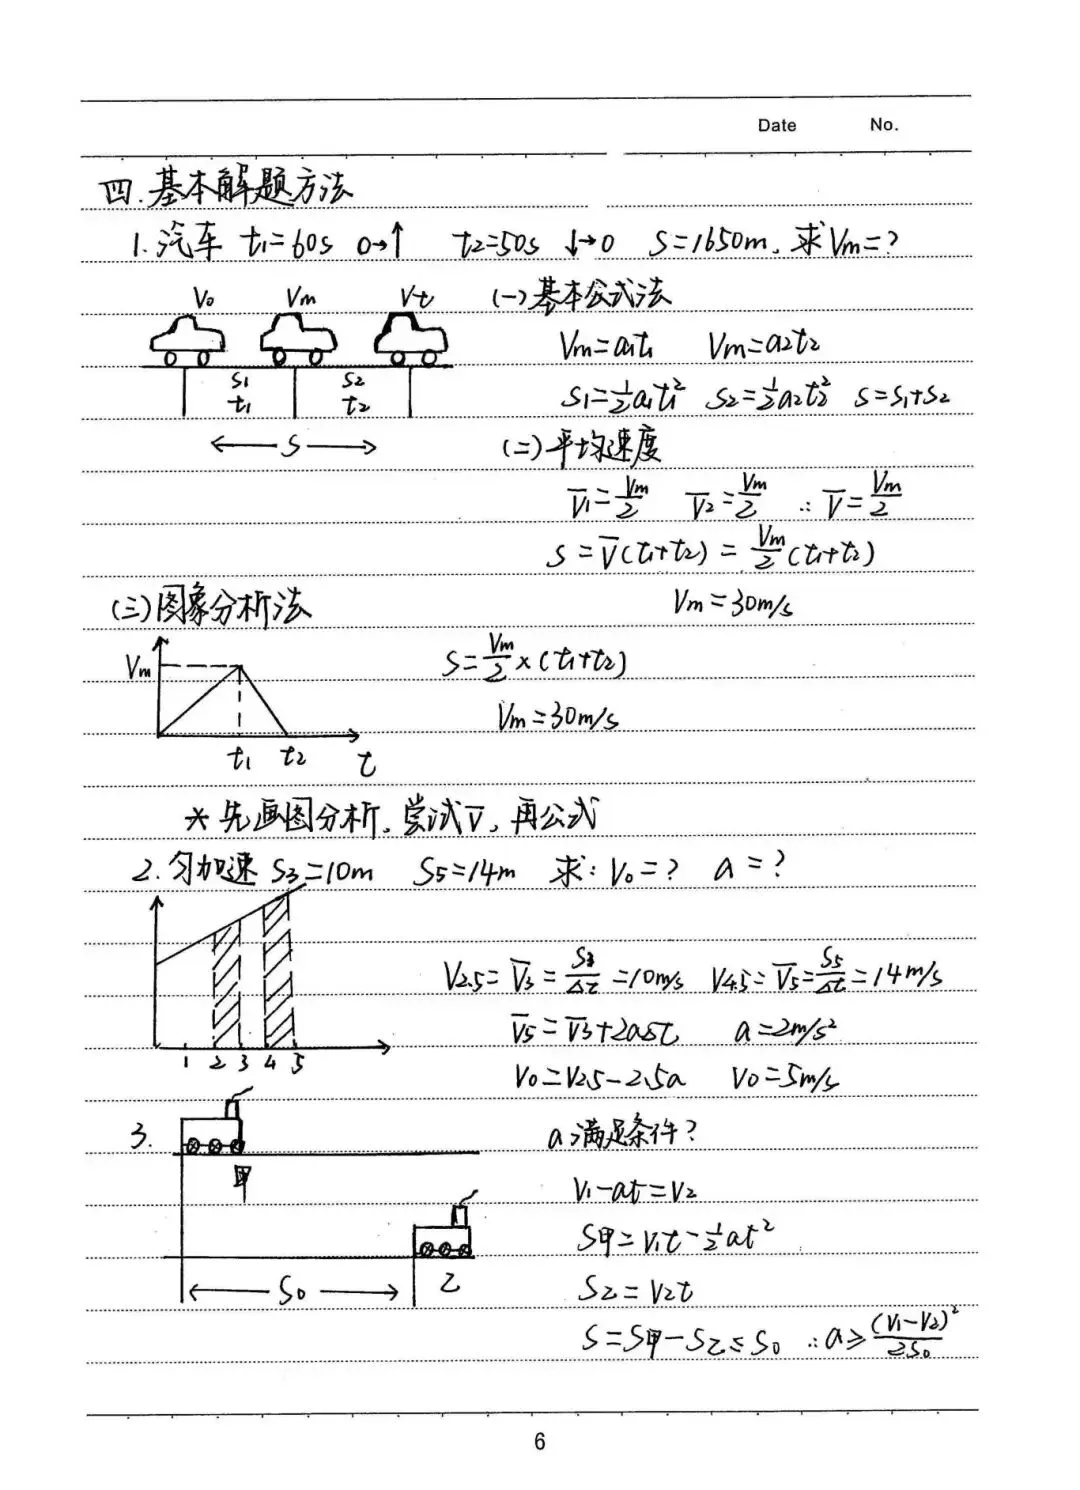 Date No.
四.基本解题方法
1.汽车 t₁=60s 0→↑ t₂=50s ↓→0 S=1650m,求Vm=?
V₀ Vm Vt (一)基本公式法
Vm=a₁t₁ Vm=a₂t₂
S₁ S₂
t₁ t₂
S₁=½a₁t₁² S₂=½a₂t₂² S=S₁+S₂
S
(二)平均速度
V̅₁=Vm/2 V̅₂=Vm/2 ∴V̅=Vm/2
S=V̅(t₁+t₂)=Vm/2(t₁+t₂)
Vm=30m/s
(三)图象分析法
Vm
S=Vm/2×(t₁+t₂)
Vm=30m/s
t₁ t₂ t
*先画图分析,尝试V̅,再公式
2.匀加速 S₃=10m S₅=14m 求:V₀=? a=?
V2.5=V̅₃=S₃/Δt=10m/s V4.5=V̅₅=S₅/Δt=14m/s
V̅₅=V̅₃+2aΔt a=2m/s²
1 2 3 4 5
V₀=V2.5-2.5a V₀=5m/s
3. a满足条件?
甲
V₁-at=V₂
S甲=V₁t-½at²
S₀ 乙
S乙=V₂t
S=S甲-S乙≤S₀ ∴a≥(V₁-V₂)²/2S₀
6